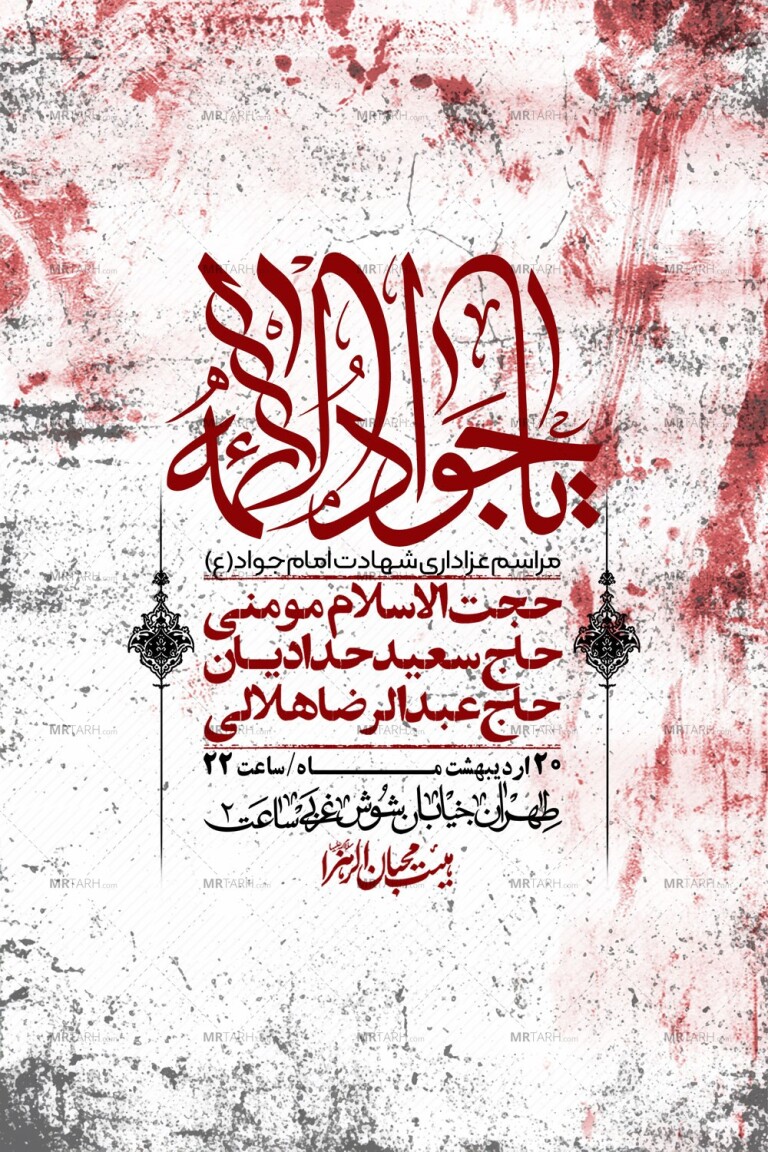 یا جواد الائمه
مراسم عزاداری شهادت امام جواد (ع)
حجت الاسلام مومنی
حاج سعید حدادیان
حاج عبدالرضا هلالی
۲۰ اردیبهشت مــاه / ساعت ۲۲
طهران خیابان شوش غربی ساعت ۲
هیئت محبان الزهرا
MRTARH.com